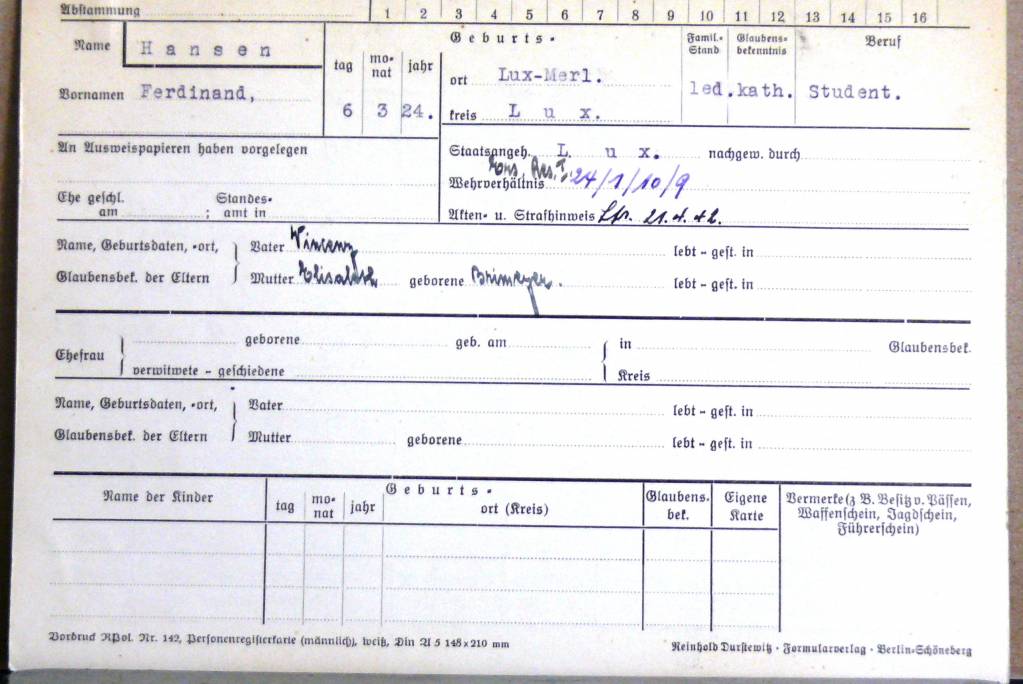 Abstammung 1 2 3 4 5 6 7 8 9 10 11 12 13 14 15 16
Name Hansen
Vornamen Ferdinand,
tag monat jahr
6 3 24.
Geburts-
ort Lux-Merl.
kreis Lux.
Famil.-Stand
led.
Glaubens-bekenntnis
kath.
Beruf
Student.
An Ausweispapieren haben vorgelegen
Staatsangeh. Lux. nachgew. durch
Ers. Res. I,
Wehrverhältnis 24/1/10/9
Ehe geschl. Standes-
am ; amt in
Akten- u. Strafhinweis 21.4.42.
Name, Geburtsdaten, -ort, Vater Vincenz lebt - gest. in
Glaubensbek. der Eltern Mutter Elisabeth geborene Brimeyer. lebt - gest. in
geborene geb. am in Glaubensbek.
Ehefrau
verwitwete - geschiedene Kreis
Name, Geburtsdaten, -ort, Vater lebt - gest. in
Glaubensbek. der Eltern Mutter geborene lebt - gest. in
Name der Kinder
tag
mo-
nat
jahr
Geburts-
ort (Kreis)
Glaubens.
bek.
Eigene
Karte
Vermerke (z B. Besitz v. Pässen,
Waffenschein, Jagdschein,
Führerschein)
Vordruck RPol. Nr. 142, Personenregisterkarte (männlich), weiß, Din A 5 148x210 mm
Reinhold Durstewitz · Formularverlag · Berlin-Schöneberg